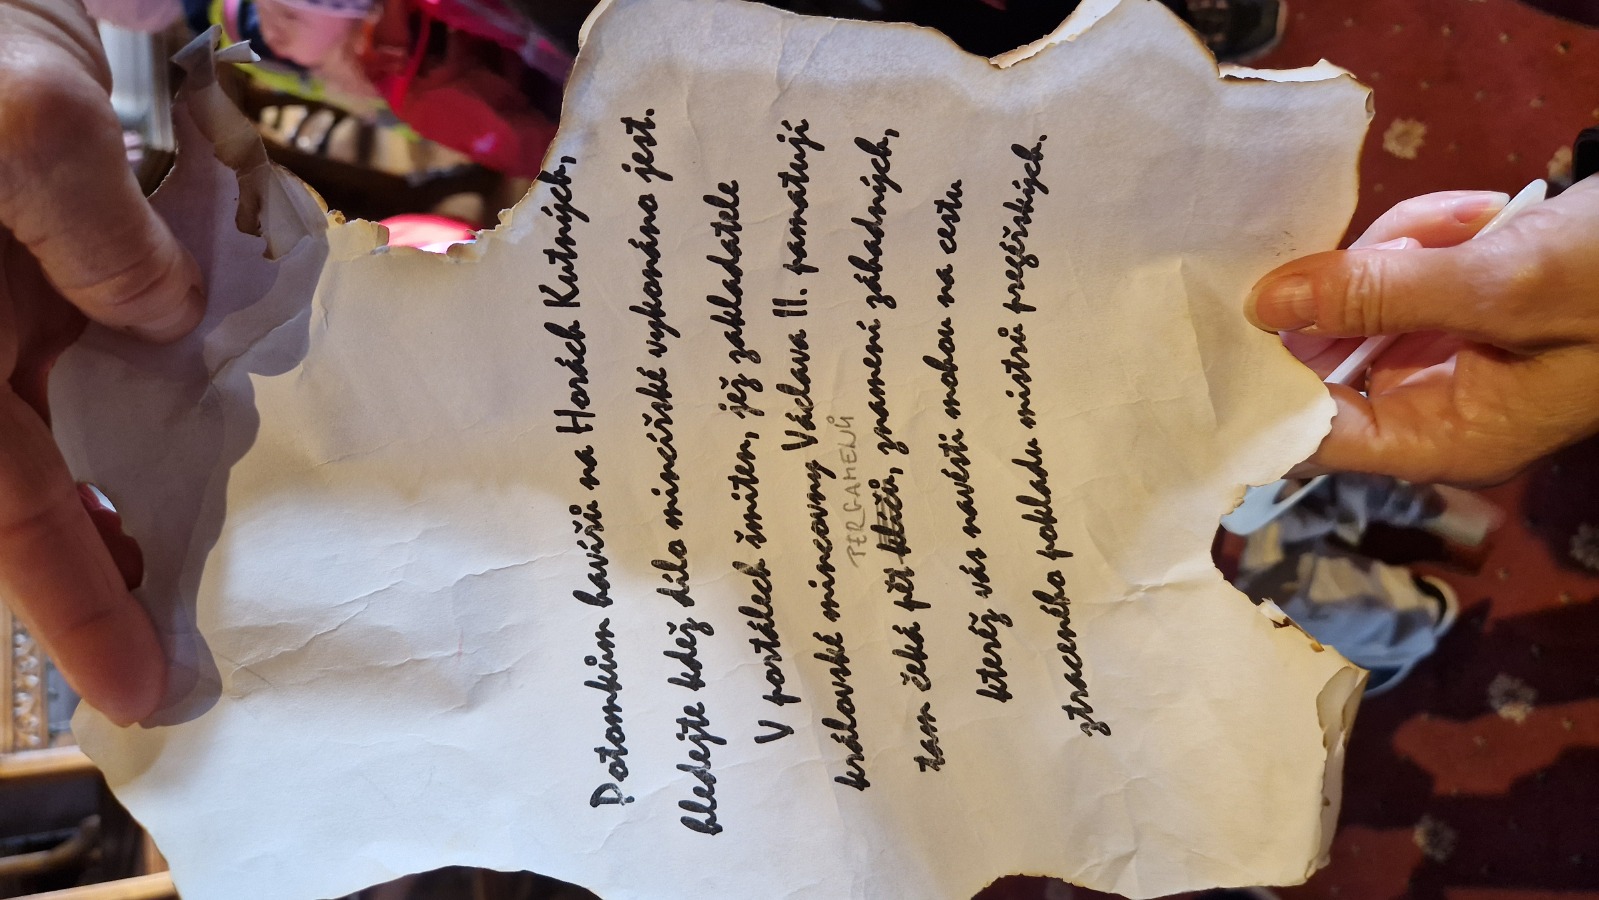 Potomkům havířů na Horách Kutných,
hledejte kdež dílo mincířské vykonáno jest.
V portálech šmiten, jež zakladatele
královské mincovny Václava II. pamatují
PERGAMENŮ
tam čeká pět klíčů, znamení záhadných,
kteréž vás navésti mohou na cestu
ztraceného pokladu mistrů pregéřských.